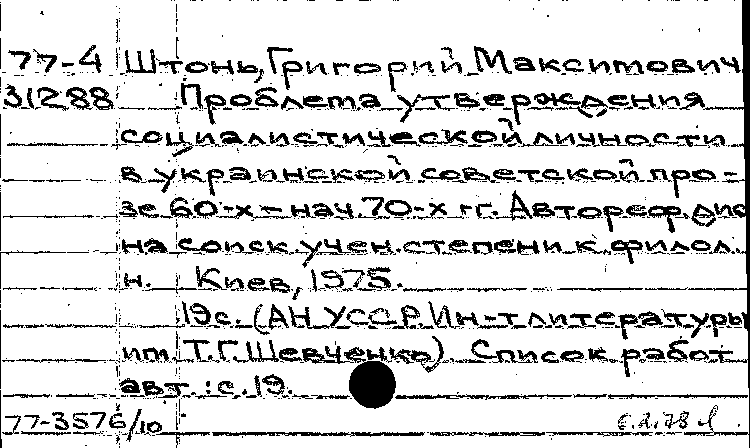 77-4 Штонь, Григорий Максимович
31288 Проблема утверждения
социалистической личности
в украинской советской про-
зе 60-х - нач. 70-х гг. Автореф. дис
на соиск. учен. степени к. филол.
н. Киев, 1975.
19с. (АН УССР Ин-т литературы
им. Т.Г. Шевченко) Список работ
авт.: с. 19.
77-3576/10